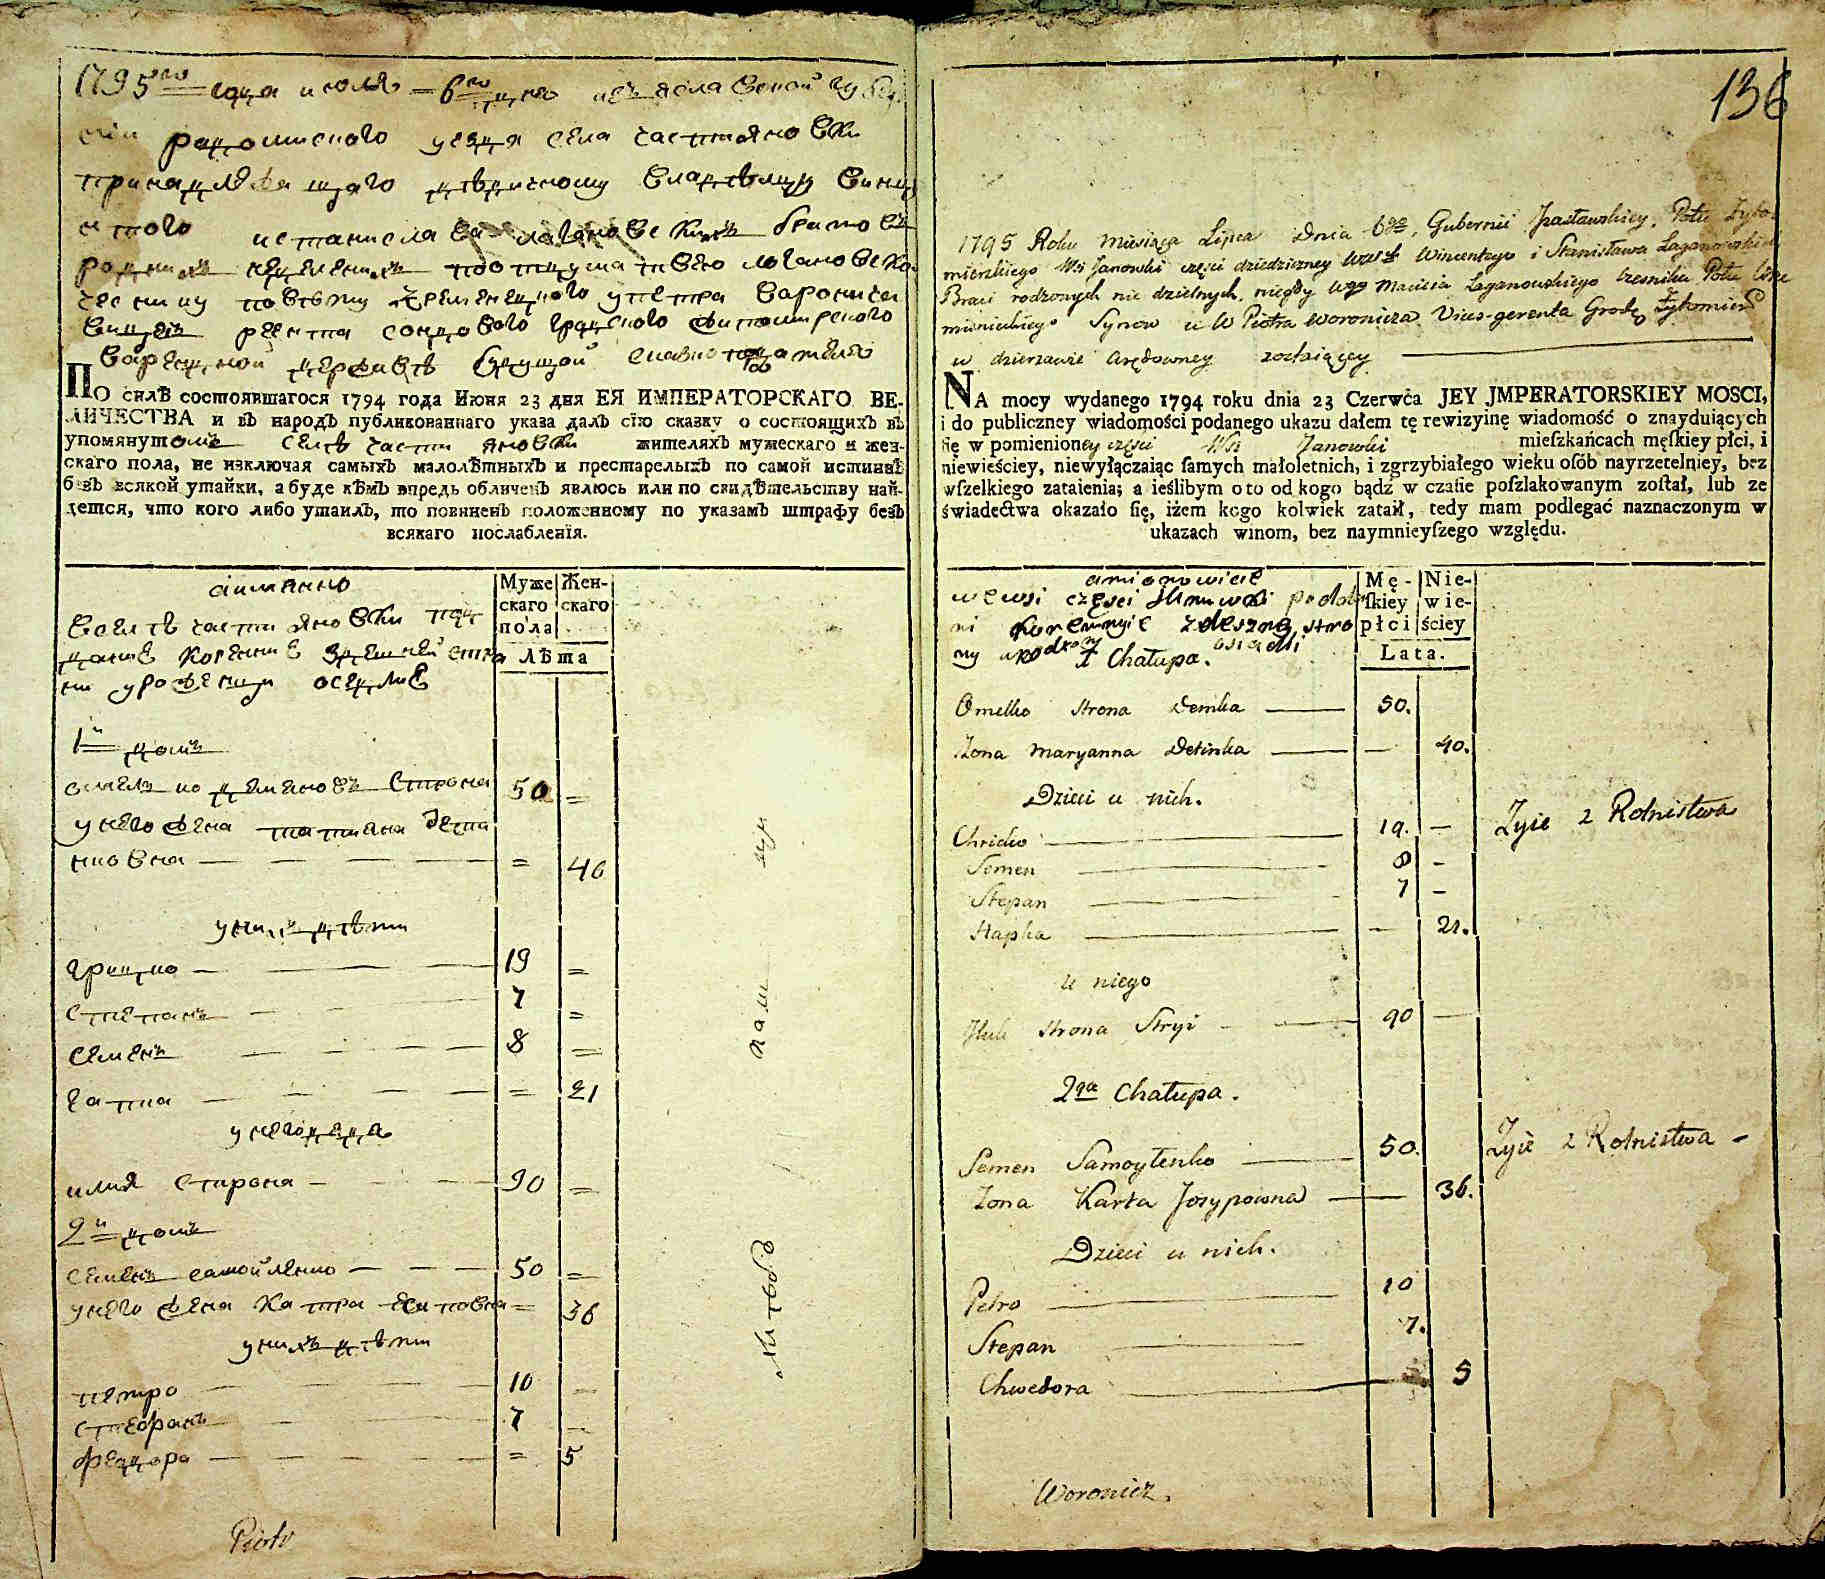 1795го года июля 6го дня изяславской губер
нии радомысского уезда села части яновки
принадлежащаго дѣдичному владѣлцу винц
ентого истанислава лагановскихъ братовъ
родныхъ
чеснику повѣту кременецкого упетра воронича
регента гродского житомирского
варендной державѣ будущой
ПО силѣ состоявшагося 1794 года Июня 23 дня ЕЯ ИМПЕРАТОРСКАГО ВЕ-
ЛИЧЕСТВА и въ народъ публикованнаго указа далъ сїю сказку о состоящихъ въ
упомянутомъ селѣ части яновки жителяхъ мужескаго и жен-
скаго пола, не изключая самыхъ малолѣтныхъ и престарелыхъ по самой истиннѣ
безъ всякой утайки, а буде кѣмъ впредь обличенъ явлюсь или по свидѣтельству най-
дется, что кого либо утаилъ, то повиненъ положенному по указамъ штрафу безъ
всякаго послабленїя.
аимянно
Муже скаго пола
Жен- скаго
Лѣта
Вселѣ части яновки под
даніе коренніе здешней сто
ни уроженци оседліе
1й домъ
омелко демяновъ Строна 50 =
унего жена татияна
новна = 40
унихъ дѣти
грицко 19 =
степанъ 7 =
семенъ 8 =
гапка = 21
унего дядя
илия Строна 90 =
2й домъ
семенъ самойленко 50 =
унего жена катра есиповна = 36
унихъ дѣти
петро 10
стефанъ 7
федора = 5
Piotr
136
1795 Roku Miesiąca Lipca Dnia 6go, Gubernii Izasławskiey, Pottu Żyto-
mierskiego Wsi Janowki części dziedziczney WW Wincentego i Stanisława Łaganowskich
Braci rodzonych nie dzielnych, niegdy Wgo Macieia Łaganowskiego Czesnika Pottu Krze
mienieckiego Synow a W Piotra Woronicza Vices-gerenta Grodz Żytomier
w dzierzawie arędowney zostaiącey
NA mocy wydanego 1794 roku dnia 23 Czerwca JEY JMPERATORSKIEY MOSCI,
i do publiczney wiadomości podanego ukazu dałem tę rewizyinę wiadomość o znayduiących
ſię w pomienioney części Wsi Janowki mieſzkańcach męſkiey płci, i
niewieściey, niewyłączaiąc ſamych małoletnich, i zgrzybiałego wieku oſób nayrzetelniey, bez
wſzelkiego zataienia; a ieślibym o to od kogo bądź w czaſie poſzlakowanym zoſtał, lub ze
świadectwa okazało ſię, iżem kogo kolwiek zataił, tedy mam podlegać naznaczonym w
ukazach winom, bez naymnieyſzego względu.
amionowicie
wewsi części Janowki podda
ni Korennyie zdeszney stro
ny urodzony osiadli
1 Chałupa.
Mę- ſkiey płci
Nie- wie- ściey
Lata.
Omelko Strona Demka 50.
Żona Maryanna 40.
Dzieci u nich.
Chricko 19. –
Semen 8 –
Stepan 7 –
Hapka – 21.
Żyie z Rolnistwa
u niego
Iluk Strona Stryi 90
2ga Chałupa.
Semen Samoylenko 50.
Żona Katra Josypowna 36.
Żyie z Rolnistwa –
Dzieci u nich.
Petro 10
Stepan 7.
Chwedora 5
Woronicz.